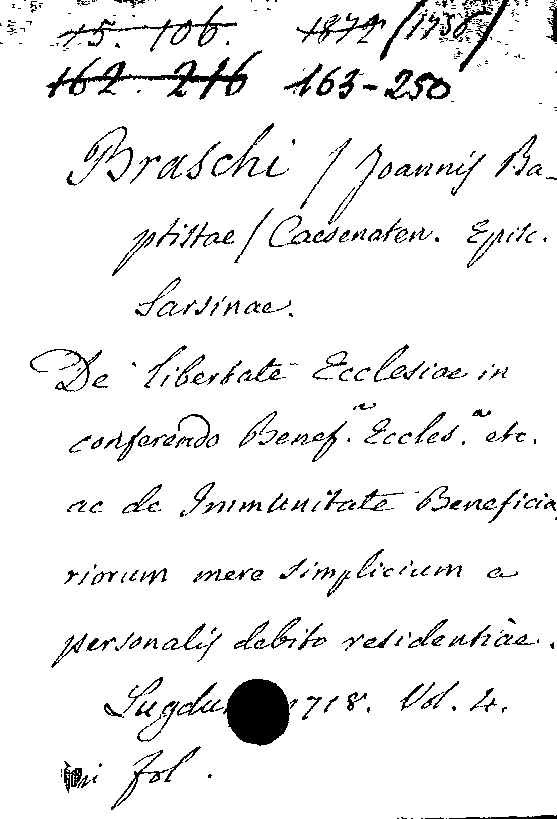 15. 106. 1872 (1758)
162. 216 163-250
Braschi / Joannis Ba-
ptistae / Caesenaten. Episc.
Sarsinae.
De libertate Ecclesiae in
conferendo Benef.ⁿ Eccles.ⁿ etc.
ac de Immunitate Beneficia
riorum mere simplicium a
personalis debito residentiae.
1718. Vol. 4.
fol.